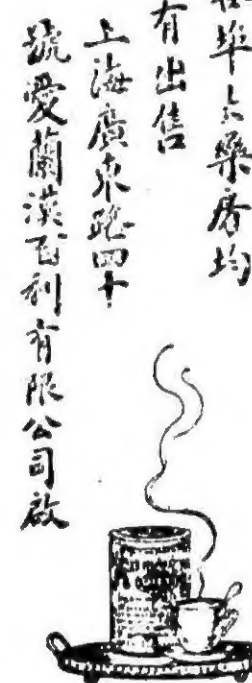 埠大藥房均
有出售
上海廣東路四十
號愛蘭漢百利有限公司啟